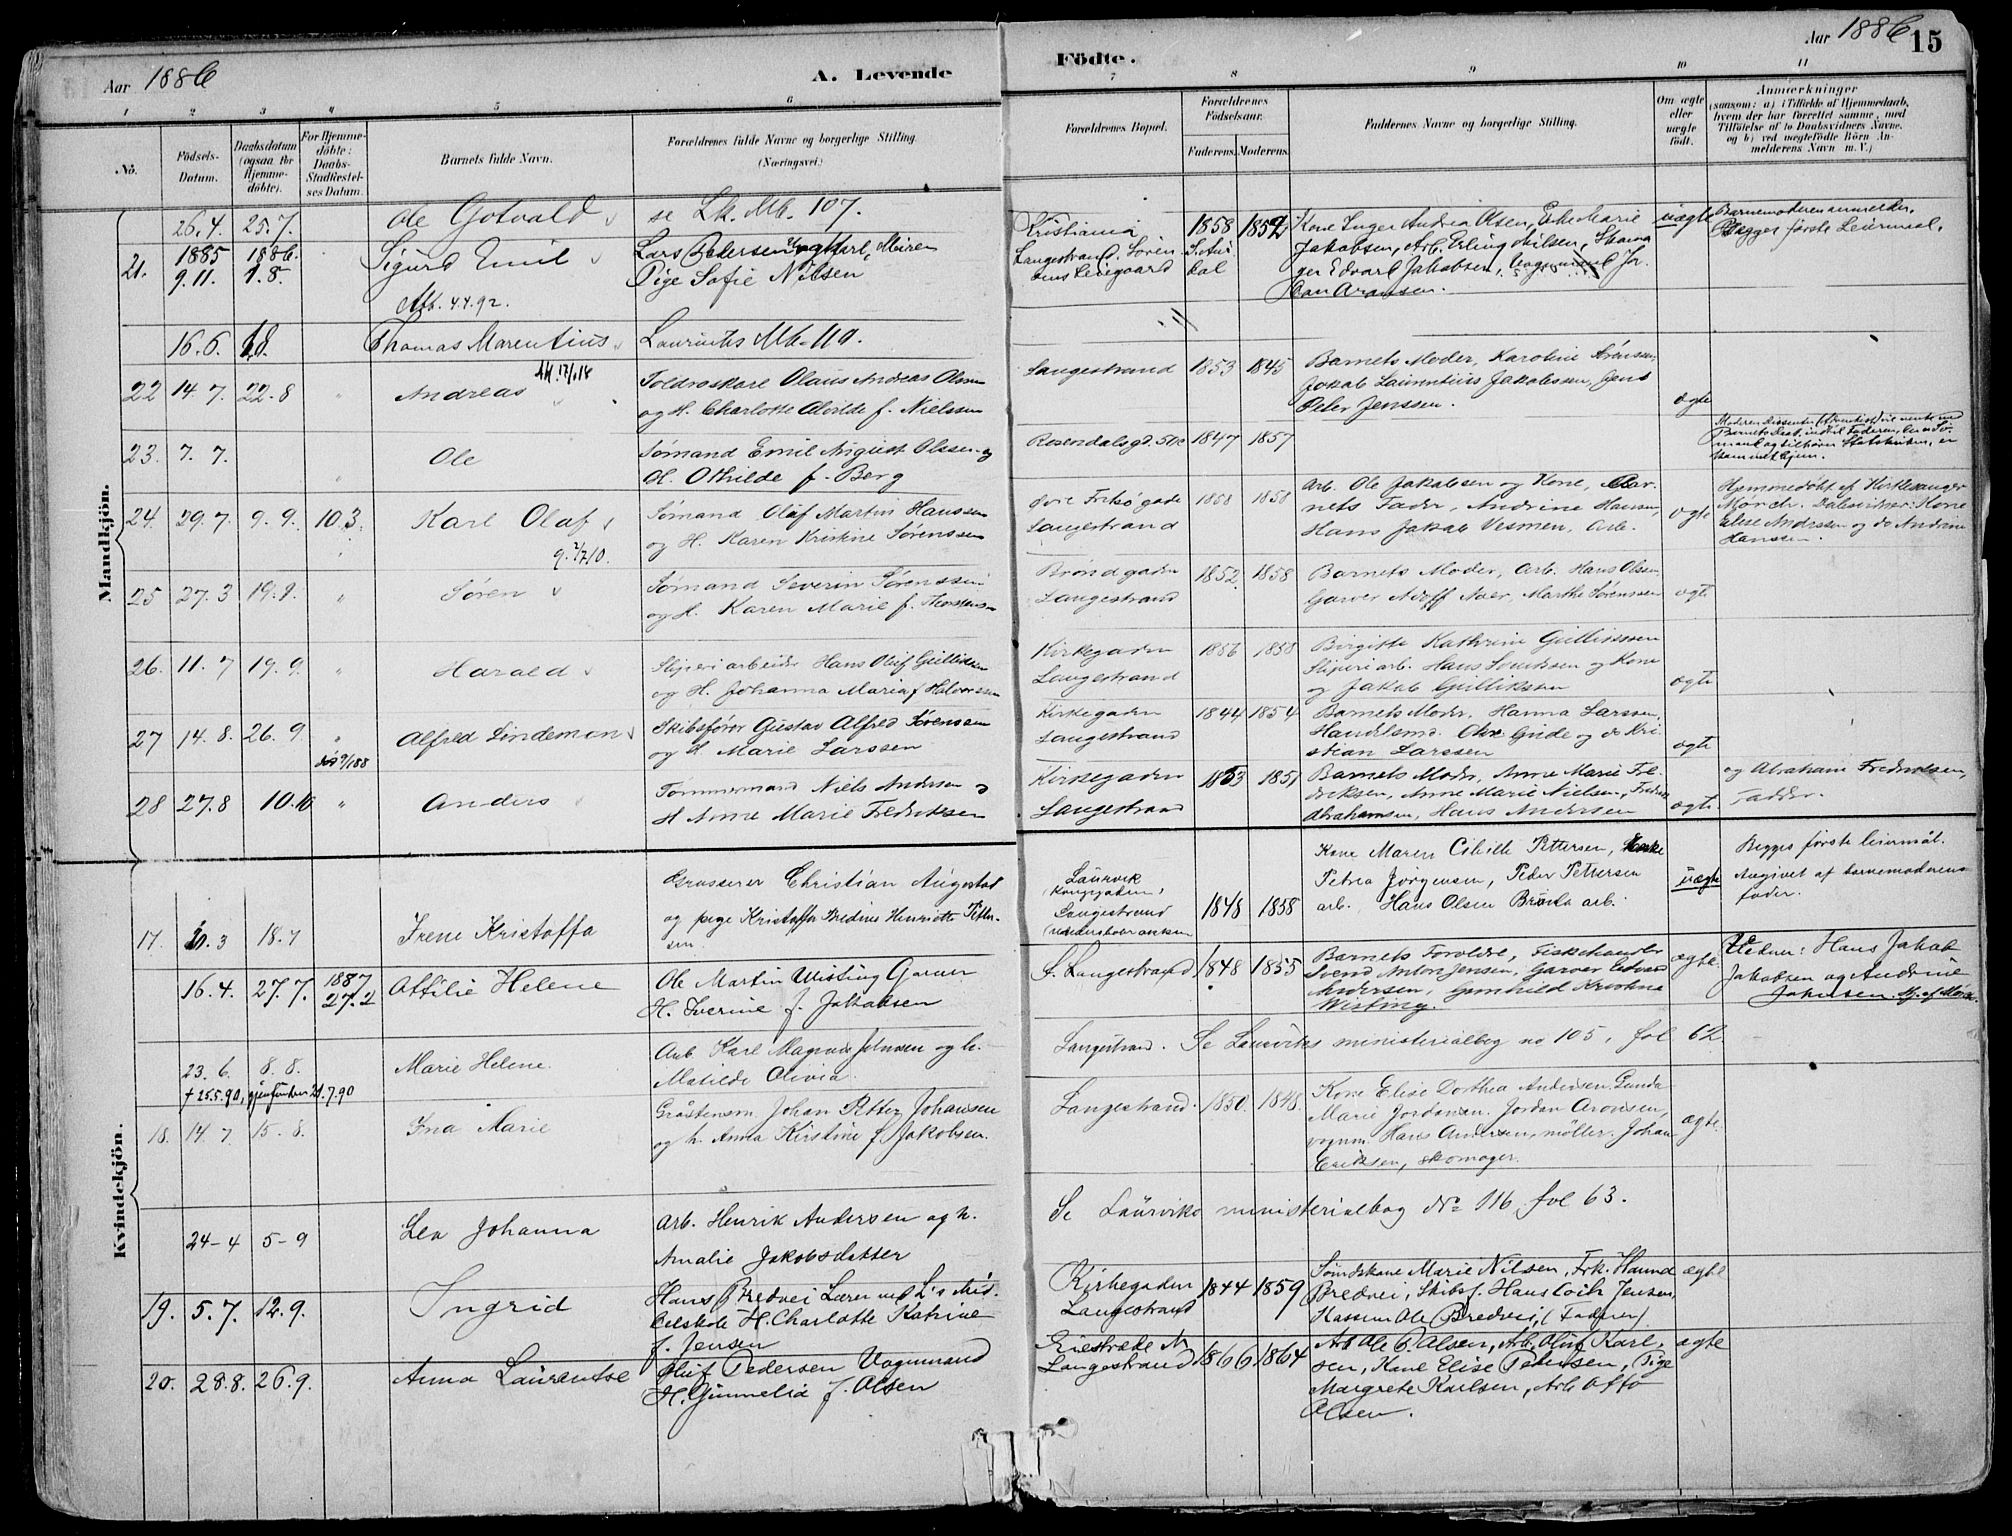 Aar 1886
A. Levende
Födte.
Aar 1886 15
1 2 3 4 5 6 7 8 9 10 11
No.
Födsels-
Datum.
Daabsdatum
(ogsaa for
Hjemme-
döbte).
For Hjemme-
döbte:
Daabs-
Stadfæstel-
ses Datum.
Barnets fulde Navn.
Forældrenes fulde Navne og borgerlige Stilling.
(Næringsvei.)
Forældrenes Bopæl.
Forældrenes
Födselsaar.
Faderens. Moderens.
Faddernes Navne og borgerlige Stilling.
Om ægte
eller
uægte
födt.
Anmærkninger
(saasom: a) i Tilfælde af Hjemmedaab,
hvem der har forrettet samme, med
Tilföielse af to Daabsvidners Navne,
og b) ved uægtefödte Börn An-
melderens Navn m. V.)
Mandkjön.
26.4. 25.7. Ole Gotvald se Lk. Mb. 107.
21. 1885 9.11. 1886. 1.8. Sigurd Emil
Lars Pedersen Ungkarl,
Pige Sofie Nilsen
Kristiania
Langestrand
1858 1852
Kone Inger Andrea Olsen, Enke Marie
Jakobsen, Arb. Erling Nilsen,
ger Edvart Jakobsen,
uægte
Barnemoderen anmelder.
Begges første Leiermaal.
16.6. Thomas Marentius
22 14.7. 22.8 Andreas
Olaus Andreas Olsen
og H. Charlotte Alvilde f. Nielssen
Langestrand 1853 1845
Barnets Moder, Karoline
Jakob Laurentius Jakobssen, Jens
Peter Jenssen.
ægte
23. 7.7. Ole
Sømand Emil August Olssen og
H. Othilde f. Berg
Rosendalsgd. 50c 1847 1857
24. 29.7. 9.9. 10.3. Karl Olaf
Sømand Olaf Martin Hanssen
og H. Karen Kristine Sørenssen
Langestrand 1858 1858
Arb. Ole Jakobsen og Kone, Bar-
nets Fader, Andrine Hansen,
Hans Jakob Vesmen, Arb.
ægte
Hjemmedøbt af Kirkesanger
Mørch.
Else Anderssen og do Andrine
Hanssen.
25 27.3 19.9. Søren
Sømand Severin Sørenssen
og H. Karen Marie f.
Brøndgaden
Langestrand
1852. 1858
Barnets Moder, Arb. Hans Olsen,
Garver Adolf Noer, Marthe Sørenssen
ægte
26. 11.7 19.9. Harald
Sliperiarbeider Hans Oluf Gulliksen
og H. Johanna Maria f. Halvorssen
Kirkegaden
Langestrand
1856 1858
Birgitte Kathrine Gulliksen
Sliperiarb. Hans
og Jakob Gulliksen
ægte
27 14.8. 26.9. Alfred Lindeman
Skibsfører Gustav Alfred Sørensen
og H. Marie Larssen
Kirkegaden
Langestrand
1844 1854
Barnets Moder, Hanna Larssen,
Handelsmd. Ole Gude og do Kri-
stian Larssen
ægte
28 27.8 10.10 Anders
Tømmermand Niels Andersen
H Anne Marie Fredriksen
Kirkegaden
Langestrand
1853 1851
Barnets Moder, Anne Marie Fre-
driksen, Anne Marie Nielsen, Fredrik
Abrahamsen, Hans Andersen
ægte
og Abraham Fredriksen,
Fadder.
Kvindekjön.
17. 20.3 18.7 Irene Kristoffa
Grosserer Christian Augestad
og pige Kristoffa Bredine Henriette Petter-
sen.
Laurvik
(Kongegaden)
Langestrand
1848 1858
Kone Maren Cibille Pettersen, Enke
Petrea Jørgensen, Peder Pettersen
arb. Hans Olsen arb.
uægte
Begges første leiermål.
Angivet af barnemoderens
fader.
16.4. 27.7. 1887 27.2 Attilie Helene
Ole Martin Wisting Garver
H. Iverine f. Jakobsen
S. Langestrand 1848 1855
Barnets Forældre, Fiskehandler
Svend Anton Jensen, Garver Edvard
Andersen, Gunhild Kristina
Wisting.
ægte
Vidner: Hans Jakob
Jakobsen og Andrine
23.6. 8.8. Marie Helene.
† 25.5.90, 21.7.90
Arb. Karl Magnus Johnsen og h.
Matilde Olivia.
Langestrand. Se Laurviks ministerialbog no 105, fol 62.
18. 14.7 15.8. Ina Marie
Gråstensm. Johan Petter Johansen
og h. Anna Kirstine f. Jakobsen.
Langestrand. 1850. 1848.
Kone Elise Dorthea Andersen. Gunda
Marie Jordansen. Jordan Aronsen,
vognm. Hans Andersen, møller. Johan
Eriksen, skomager.
ægte.
24-4 5-9 Lea Johanna
Arb. Henrik Andersen og h.
Amalie Jakobsdatter
Se Laurviks ministerialbog No 116 fol 63.
19. 5.7. 12.9. Ingrid
Hans Bredvei Lærer ved L's Mid-
delskole H. Charlotte Katrine
f. Jensen
Kirkegaden
Langestrand
1844 1859
Sømdskone Marie Nilsen, Frk. Hanna
Bredvei, Skibsf. Hans Jensen,
Ole Bredvei, (Faderen)
ægte
20. 28.8. 26.9. Anna Laurentse
Oluf Pedersen Vognmand
H. Gunnelia f. Olsen
Langestrand 1866 1864
Arb Ole P. Olsen, Arb. Oluf Karl-
sen, Kone Elise Pedersen, Pige
Margrete Karlsen, Arb Otto
Olsen.
ægte